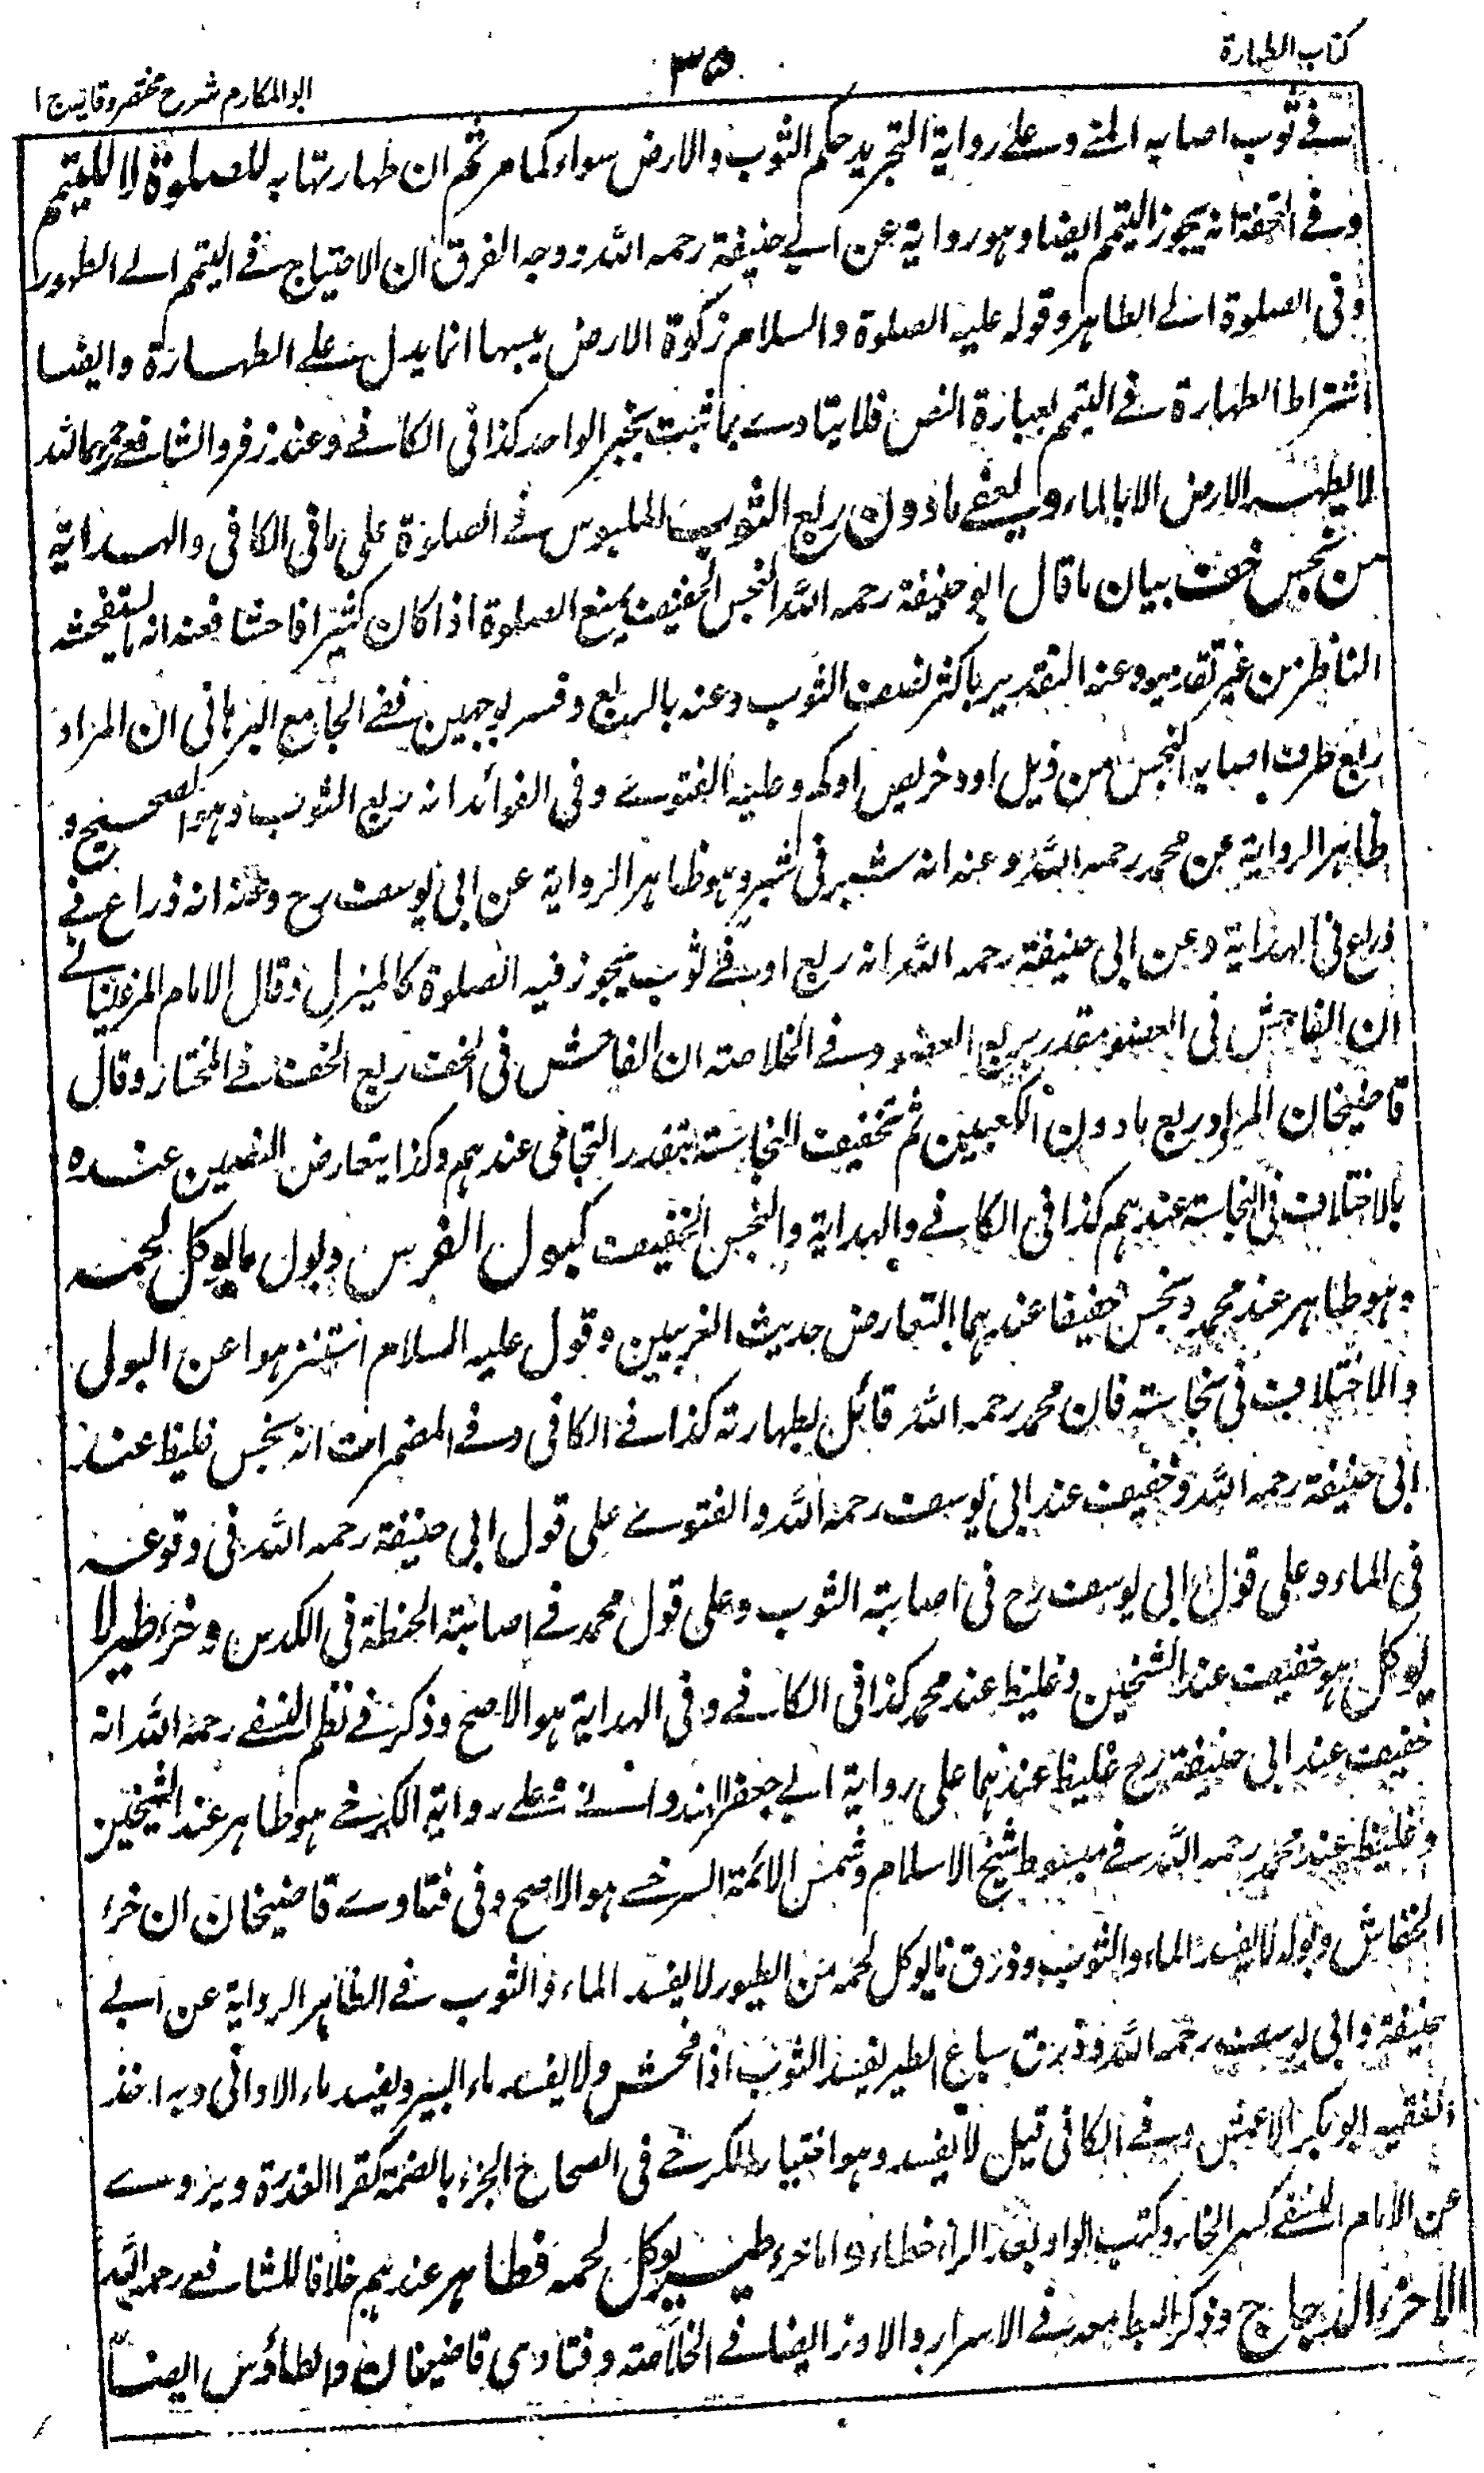 كتاب الطهارة
٣٥
ابو المكارم شرح مختصر وقايه ج ١
فے ثوب اصابه المنے وعلے رواية التجريد حكم الثوب والارض سواء كما مر ثم ان طهارتها به للصلوة لا للتيمم
وفے التحفة انه يجوز التيمم ايضا وهو رواية عن ابے حنيفة رحمه الله ووجه الفرق ان الاحتياج فے التيمم الے الطهور
وفى الصلوة الے الطاهر وقوله عليه الصلوة والسلام زكوة الارض يبسها انما يدل علے الطهارة وايضا
اشتراط الطهارة فے التيمم بعبارة النص فلا يتادے بما ثبت بخبر الواحد كذا فى الكافے وعند زفر والشافعے رحمهما الله
لا يطهر الارض الا بالماء ويعفے ما دون ربع الثوب الملبوس فے الصلوة على ما فى الكافى والهداية
من نجس خف بيان ما قال ابو حنيفة رحمه الله النجس الخفيف يمنع الصلوة اذا كان كثيرا فاحشا فعنه انه ما يستفحشه
الناظر من غير تقدير وعنه التقدير باكثر نصف الثوب وعنه بالربع وفسر بوجهين ففے الجامع البرهانى ان المراد
ربع طرف اصابه النجس من ذيل او دخريص او كم وعليه الفتوے وفى الفوائد انه ربع الثوب وهو الصحيح و
ظاهر الرواية عن محمد رحمه الله وعنه انه شبر فى شبر وهو ظاهر الرواية عن ابى يوسف رح وعنه انه ذراع فے
ذراع فى الهداية وعن ابى حنيفة رحمه الله انه ربع ادنے ثوب يجوز فيه الصلوة كالميزر وقال الامام المرغينانے
ان الفاحش فى العضو مقدر بربع العضو وفے الخلاصته ان الفاحش فى الخف ربع الخف فے المختار وقال
قاضيخان المراد ربع ما دون الكعبين ثم تخفيف النجاسته عندهم وكذا بتعارض النصين عنده
بالاختلاف فى النجاسته عندهم كذا فى الكافے والهداية والنجس الخفيف كبول الفرس وبول ما يوكل لحمه
وهو طاهر عند محمد ونجس خفيفا عندهما التعارض حديث العرنيين وقول عليه السلام استنزهوا عن البول
والاختلاف فى نجاسته فان محمد رحمه الله قائل بطهارته كذا فے الكافى وفے المضمرات انه نجس غليظ عند
ابى حنيفة رحمه الله وخفيف عند ابى يوسف رحمه الله والفتوے على قول ابى حنيفة رحمه الله فى وقوعه
فى الماء وعلى قول ابى يوسف رح فى اصابته الثوب وعلى قول محمد فے اصابته الحنطة فى الكدس وخرء طير لا
يوكل هو خفيف عند الشيخين وغليظ عند محمد كذا فى الكافے وفى الهداية هو الاصح وذكر فے نظم النسفے رحمه الله انه
خفيف عند ابى حنيفة رح غليظ عندهما على رواية ابے جعفر الهندوانے وعلے رواية الكرخے هو طاهر عند الشيخين
وغليظ عند محمد رحمه الله فے مبسوط شيخ الاسلام وشمس الائمة السرخسے هو الاصح وفى فتاوے قاضيخان ان خرء
الخفاش وبوله لا يفسد الماء والثوب وذرق ما يوكل لحمه من الطيور لا يفسد الماء والثوب فے الظاهر الرواية عن ابے
حنيفة وابى يوسف رحمه الله وذرق سباع الطير يفسد الثوب اذا فحش ولا يفسد ماء البير ويفسد ماء الاوانى وبه اخذ
الفقيه ابو بكر الاعمش وفے الكافى قيل لا يفسد وهو اختيار الكرخے فى الصحاح الخرء بالضمة كقرا العذرة ويروے
عن الامام النسفے كسر الخاء وكتب الواو بعد الراء خطاء واما خرء طير يوكل لحمه فطاهر عندهم خلافا للشافعے رحمه الله
الا خرء الدجاج وذكر البط معه فے الاسرار والاوز ايضا فے الخلاصته وفتاوى قاضيخان والطاؤس ايضا